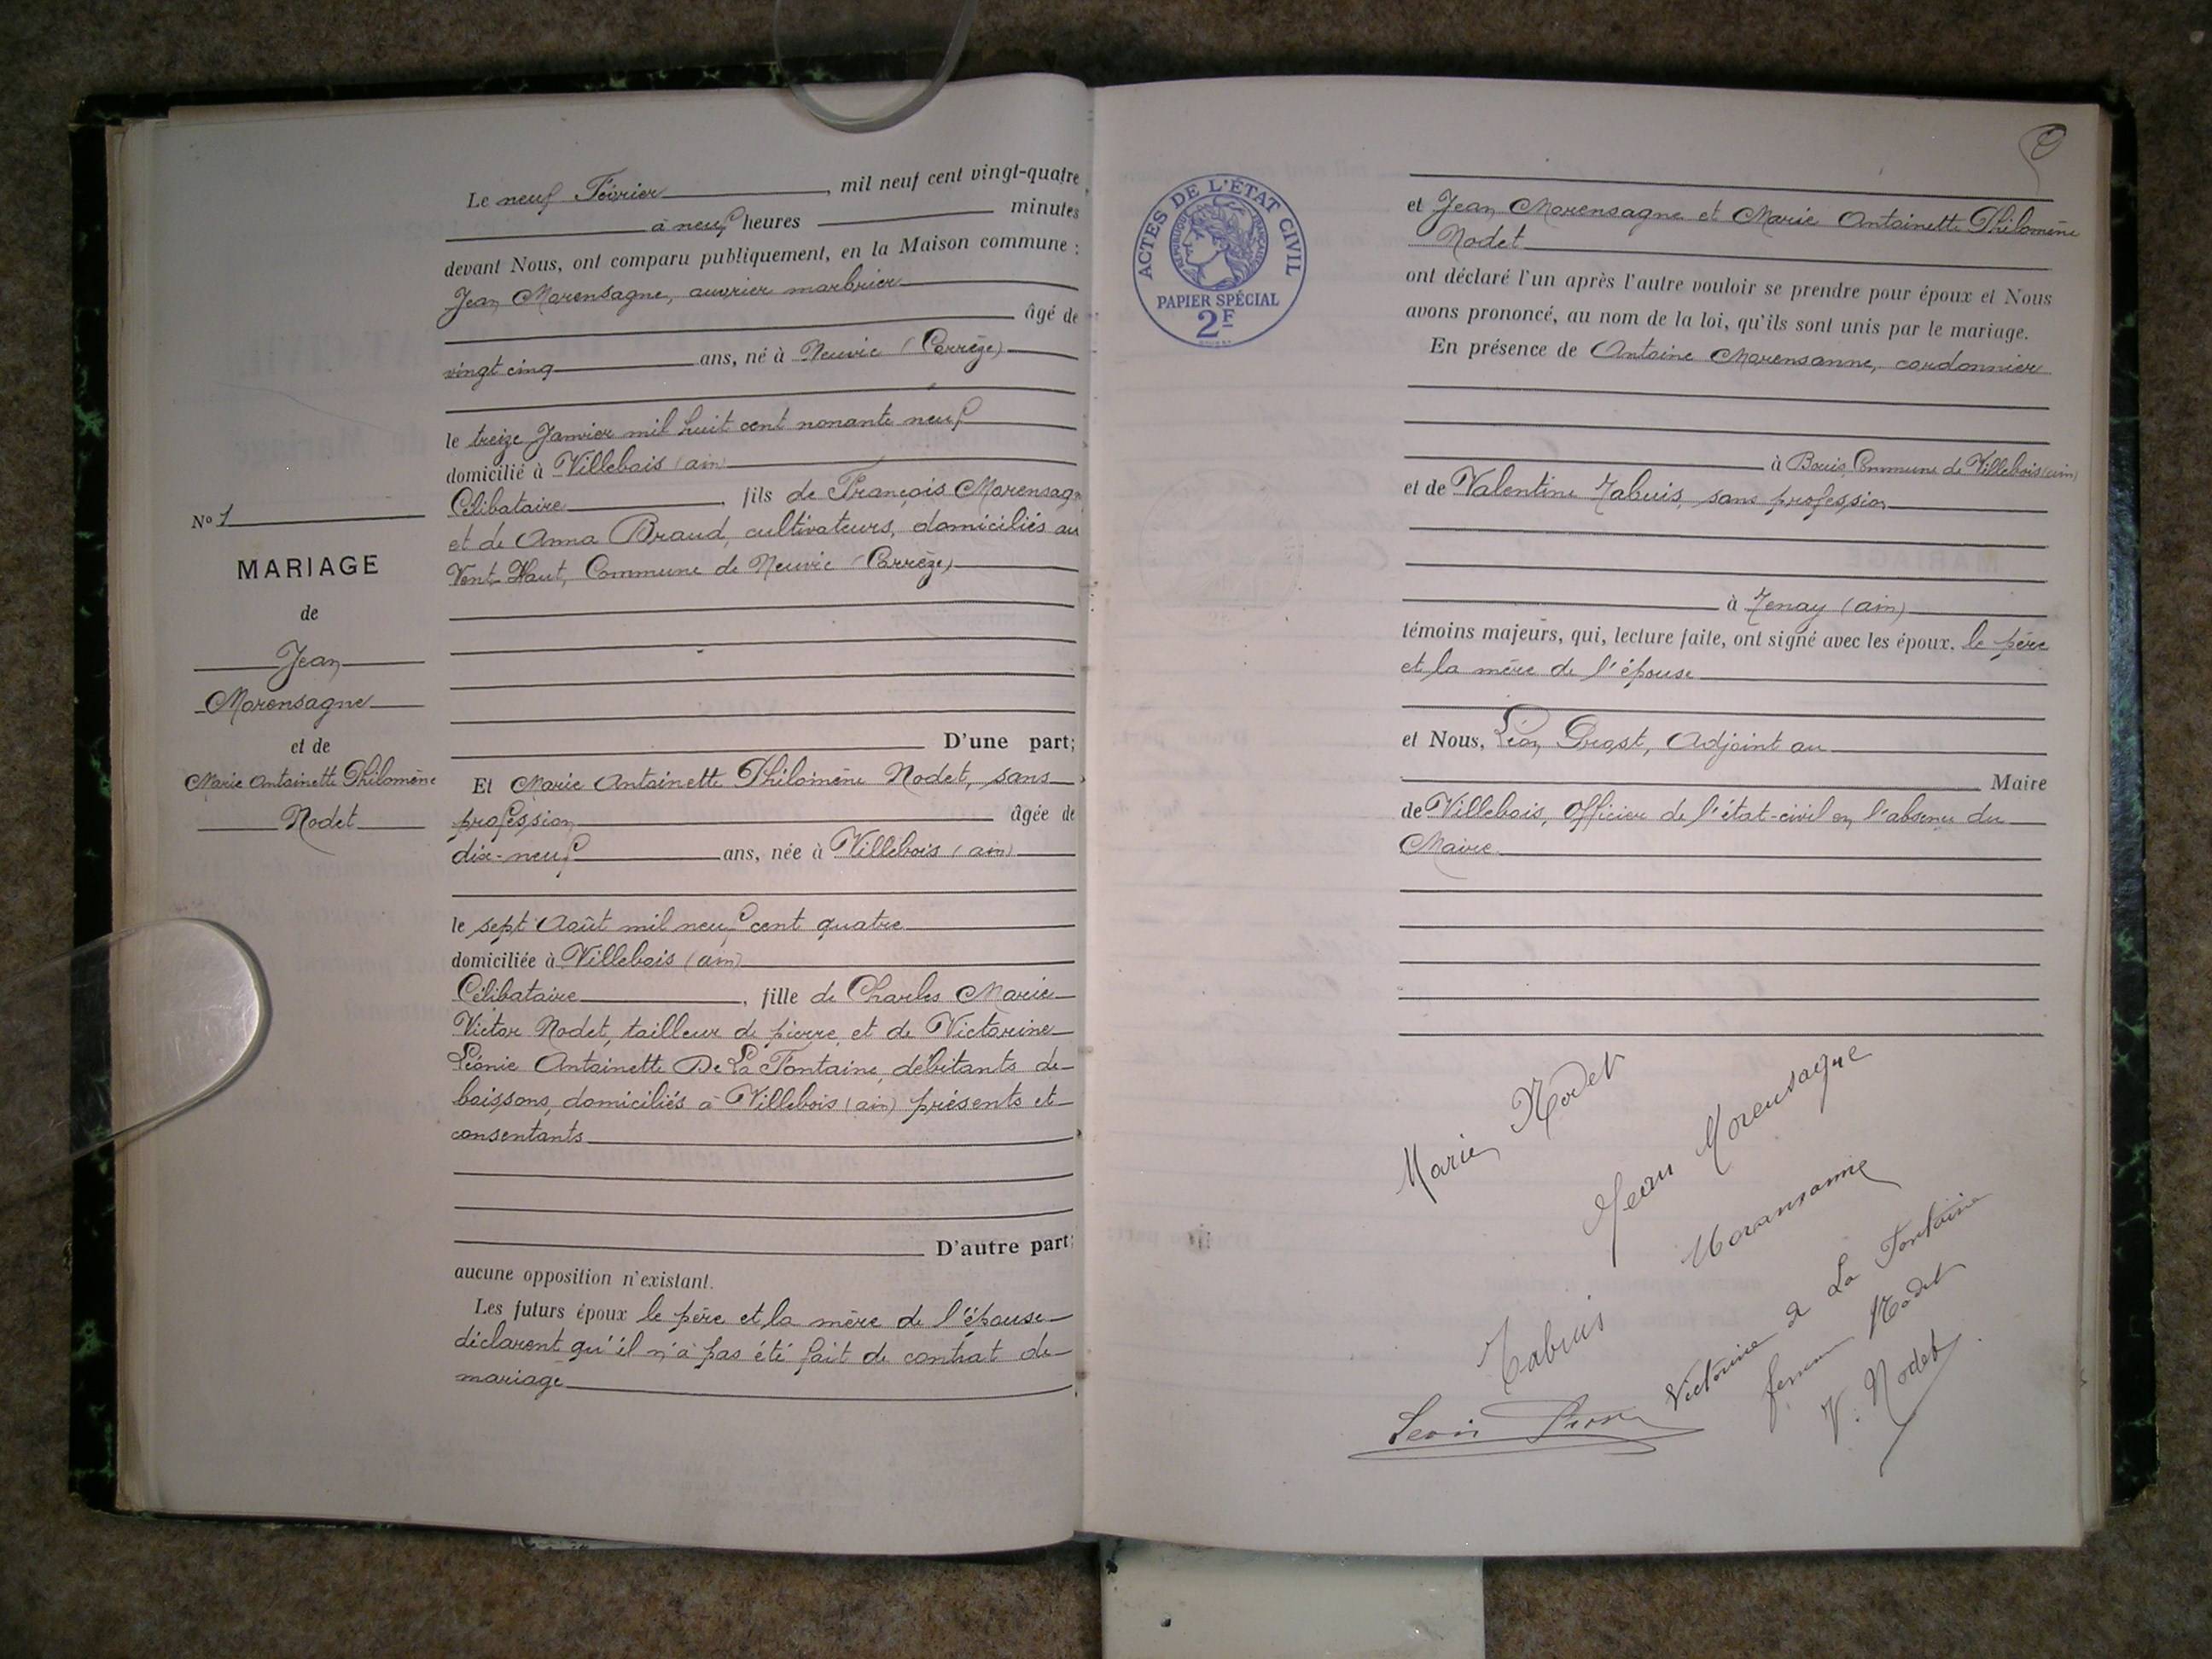 Le neuf Février, mil neuf cent vingt-quatre
à neuf heures minutes
devant Nous, ont comparu publiquement, en la Maison commune :
Jean Morensagne, ouvrier marbrier
âgé de
vingt cinq ans, né à Neuvic (Corrèze)
le treize Janvier mil huit cent nonante neuf
domicilié à Villebois (ain)
Célibataire, fils de François Morensag
et de Anna Braud, cultivateurs, domiciliés au
Vent Haut, Commune de Neuvic (Corrèze)
D'une part;
No 1
MARIAGE
de
Jean
Morensagne
et de
Marie Antoinette Philomène
Nodet
Et Marie Antoinette Philomène Nodet, sans
profession âgée de
dix-neuf ans, née à Villebois (ain)
le sept Août mil neuf cent quatre
domiciliée à Villebois (ain)
Célibataire, fille de Charles Marie
Victor Nodet, tailleur de pierre, et de Victorine
Léonie Antoinette De La Fontaine, débitants de
boissons, domiciliés à Villebois (ain) présents et
consentants
D'autre part;
aucune opposition n'existant.
Les futurs époux le père et la mère de l'épouse
déclarent qu'il n'a pas été fait de contrat de
mariage
ACTES DE L'ÉTAT CIVIL
RÉPUBLIQUE FRANÇAISE
PAPIER SPÉCIAL
2F
et Jean Morensagne et Marie Antoinette Philomène
Nodet
ont déclaré l'un après l'autre vouloir se prendre pour époux et Nous
avons prononcé, au nom de la loi, qu'ils sont unis par le mariage.
En présence de Antoine Morensanne, cordonnier
à Bouis, Commune de Villebois (ain)
et de Valentine Tabuis, sans profession
à Tenay (ain)
témoins majeurs, qui, lecture faite, ont signé avec les époux, le père
et la mère de l'épouse
et Nous, Léon Prost, Adjoint au
Maire
de Villebois, Officier de l'état-civil en l'absence du
Maire.
Marie Nodet
Jean Morensagne
Moransanne
Tabuis
Victorine de La Fontaine
femme Nodet
V. Nodet